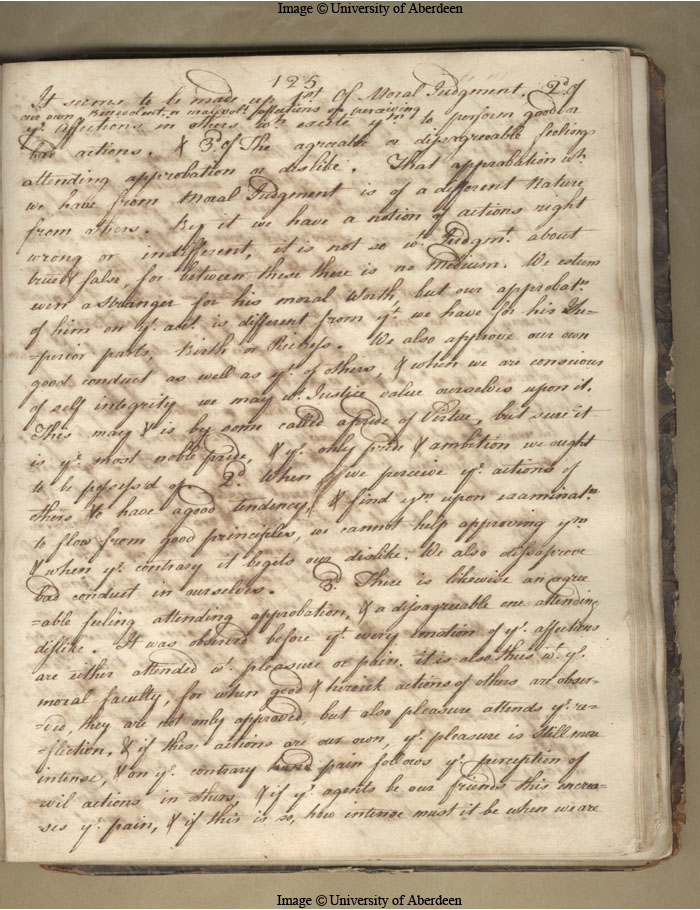 Image © University of Aberdeen
125
It seems to be made up 1st Of Moral Judgment. 2d. of
our own Benevolent or malevolt. affections on perceiving
ye. affections in others wch. excite ym. to perform good or
bad actions. & 3d. of The agreeable or dissagreeable feelings
attending approbation or dislike. That approbation wch.
we have from Moral Judgment is of a different Nature
from others. By it we have a notion of actions right
wrong or indifferent, it is not so wt. Judgmt. about
true & false, for between these there is no medium. We esteem
even a stranger for his moral Worth, but our approbatn.
of him on yt. acct. is different from yt. we have for his Su=
=perior parts, Birth or Riches. We also approve our own
good conduct as well as yt. of others, & when we are conscious
of self integrity we may wt. Justice value ourselves upon it.
This may & is by some called a pride of Virtue, but sure it
is ye. most noble pride, & ye. only pride & ambition we ought
to be possess'd of. 2d. When we perceive ye. actions of
others to have a good tendency, & find ym. upon examinatn.
to flow from good principles, we cannot help approving ym.
& when ye. contrary it begets our dislike. We also dissaprove
bad conduct in ourselves. 3. There is likewise an agree
=able feeling attending approbation, & a dissagreeable one attending
dislike. It was observed before yt. every emotion of ye. affections
are either attended wt. pleasure or pain. it is also thus wt. ye.
moral faculty, for when good & heroick actions of others are obser=
=ved, they are not only approved, but also pleasure attends ye. re=
=flection, & if these actions are our own, ye. pleasure is still more
intense, & on ye. contrary pain follows ye. perception of
evil actions in others, & if ye. agents be our friends this increa=
=ses ye. pain, & if this is so, how intense must it be when we are
Image © University of Aberdeen